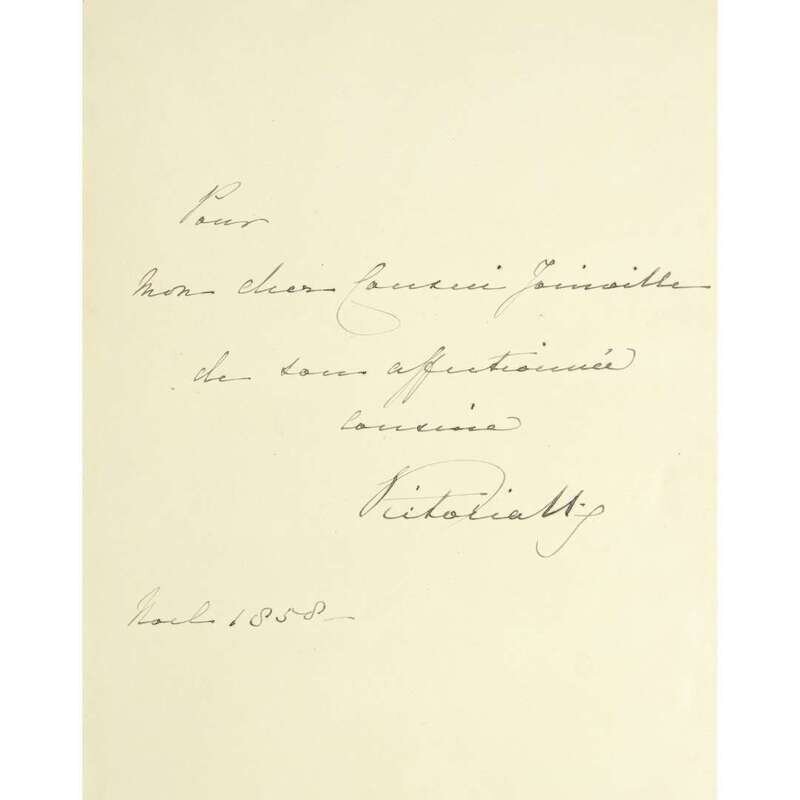 Pour
mon cher Cousin Joinville
de son affectionnée
cousine
Victoria Rg
Noel 1858 –